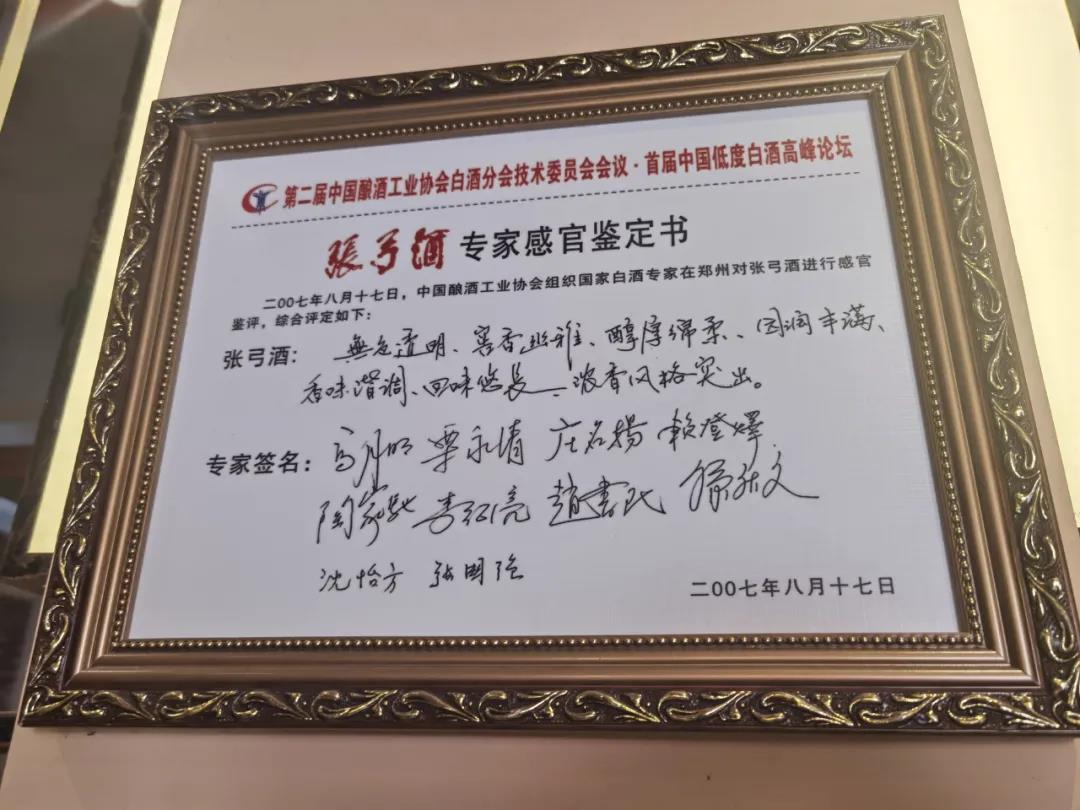 第二届中国酿酒工业协会白酒分会技术委员会会议·首届中国低度白酒高峰论坛
張弓酒 专家感官鉴定书
二00七年八月十七日，中国酿酒工业协会组织国家白酒专家在郑州对张弓酒进行感官
鉴评，综合评定如下：
张弓酒： 無色透明、窖香幽雅、醇厚绵柔、圆润丰满、
香味谐调、回味悠长、浓香风格突出。
专家签名： 高月明 栗永清 庄名扬 赖登燡
陶家驰 李红亮 趙書民
沈怡方 张国强
二00七年八月十七日